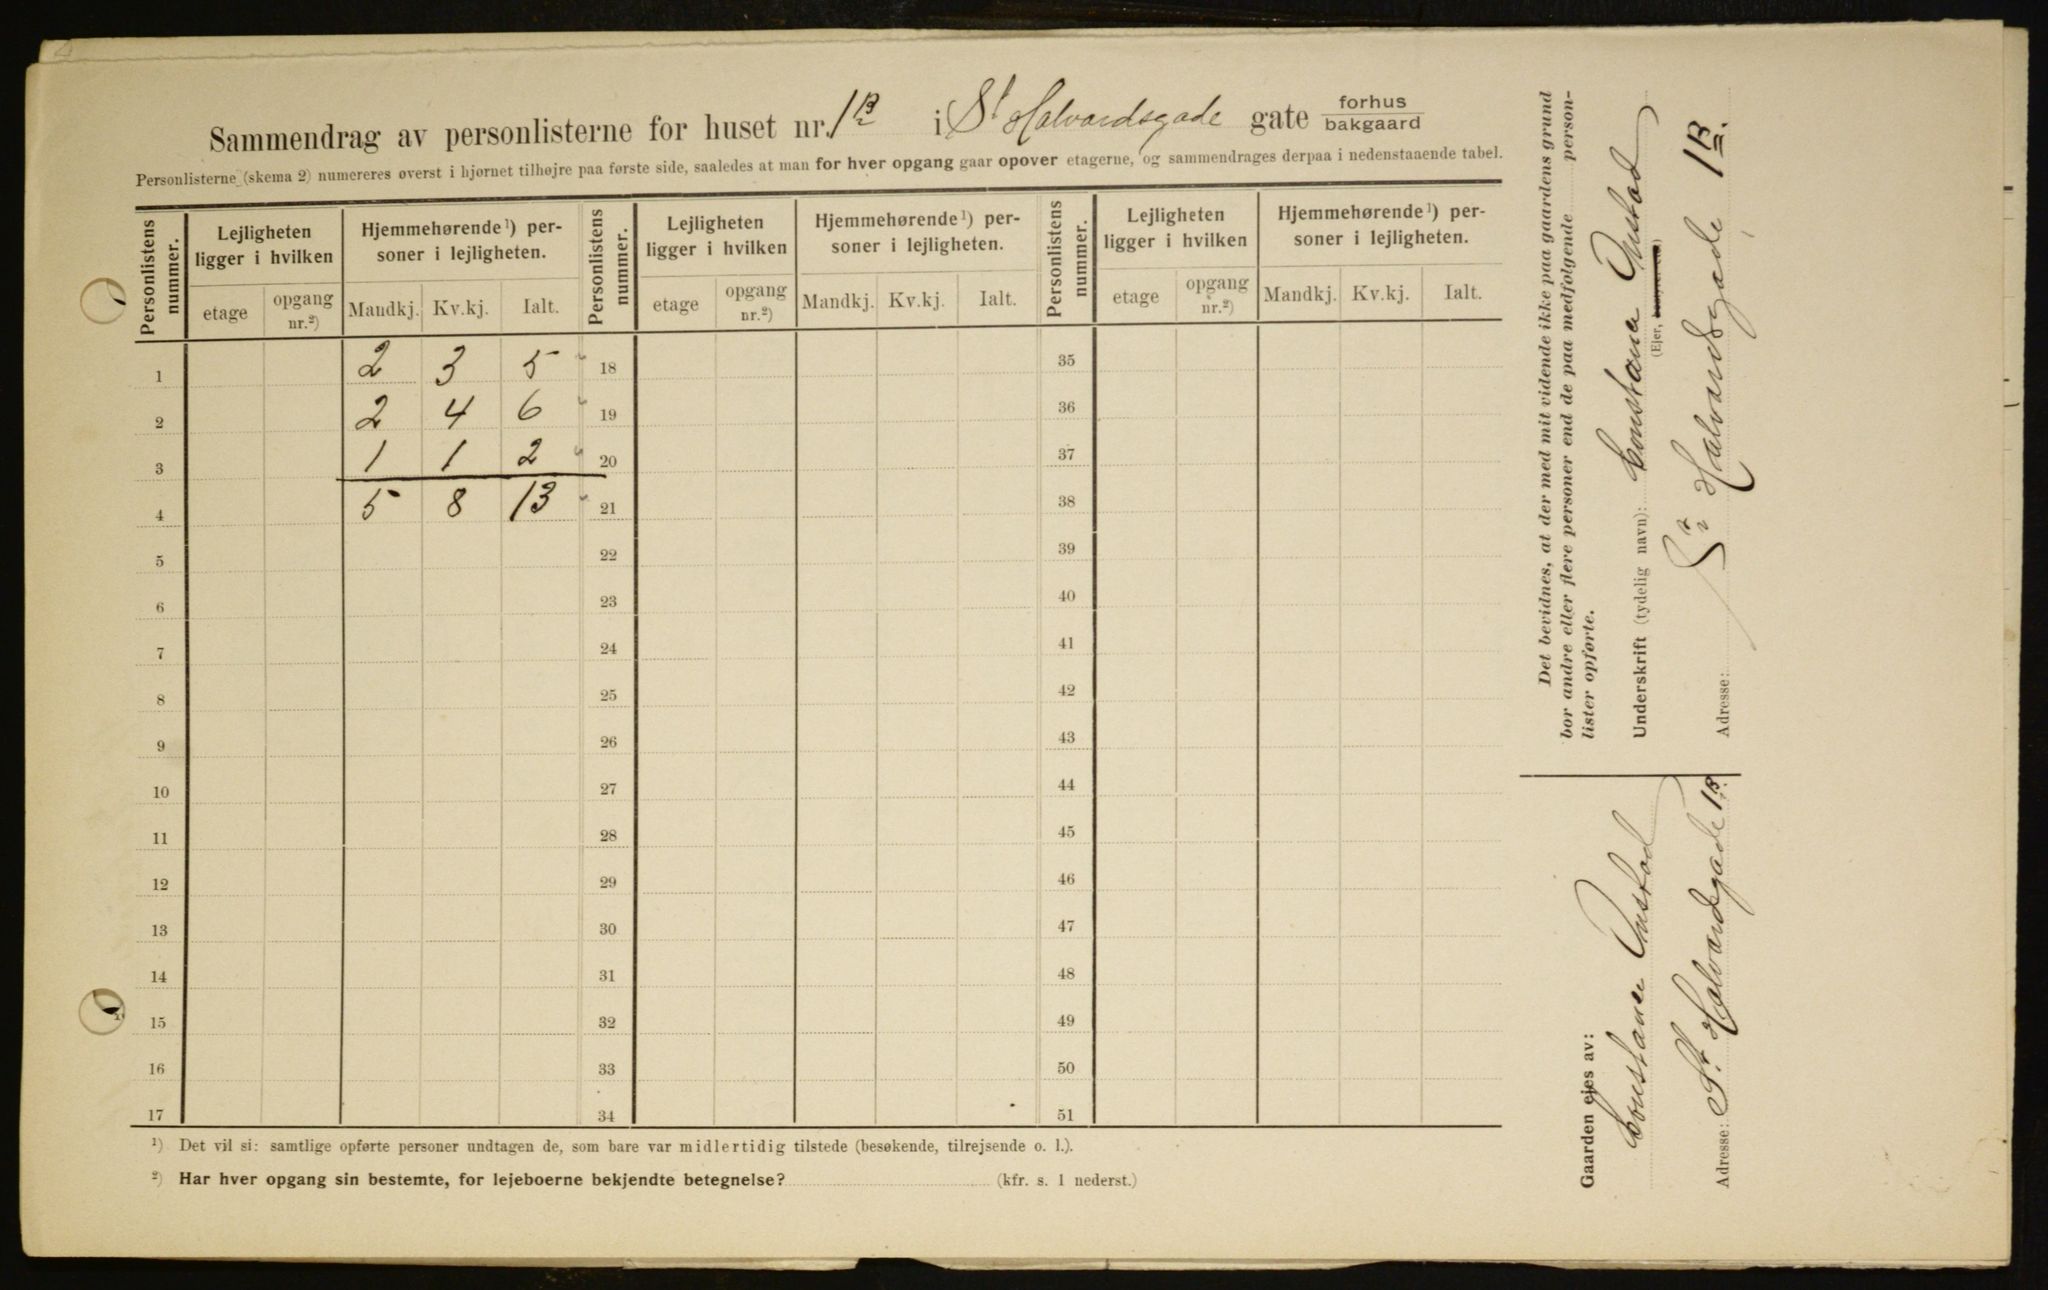 Sammendrag av personlisterne for huset nr. 1B i St Halvardsgade gate forhus
bakgaard
Personlisterne (skema 2) numereres øverst i hjørnet tilhøjre paa første side, saaledes at man for hver opgang gaar opover etagerne, og sammendrages derpaa i nedenstaaende tabel.
Personlistens nummer. Lejligheten ligger i hvilken Hjemmehørende ¹) personer i lejligheten. Personlistens nummer. Lejligheten ligger i hvilken Hjemmehørende ¹) personer i lejligheten. Personlistens nummer. Lejligheten ligger i hvilken Hjemmehørende ¹) personer i lejligheten.
etage opgang nr.²) Mandkj. Kv.kj. Ialt. etage opgang nr.²) Mandkj. Kv.kj. Ialt. etage opgang nr.²) Mandkj. Kv.kj. Ialt.
1 2 3 5 18 35
2 2 4 6 19 36
3 1 1 2 20 37
4 5 8 13 21 38
5 22 39
6 23 40
7 24 41
8 25 42
9 26 43
10 27 44
11 28 45
12 29 46
13 30 47
14 31 48
15 32 49
16 33 50
17 34 51
¹) Det vil si: samtlige opførte personer undtagen de, som bare var midlertidig tilstede (besøkende, tilrejsende o. l.).
²) Har hver opgang sin bestemte, for lejeboerne bekjendte betegnelse? (kfr. s. 1 nederst.)
Det bevidnes, at der med mit vidende ikke paa gaardens grund
bor andre eller flere personer end de paa medfølgende person-
lister opførte.
Underskrift (tydelig navn): Constance Onstad
(Ejer,
Adresse: St. Halvardsgade 1B.
Gaarden ejes av:
Constance Onstad
Adresse: St. Halvardsgade 1B.